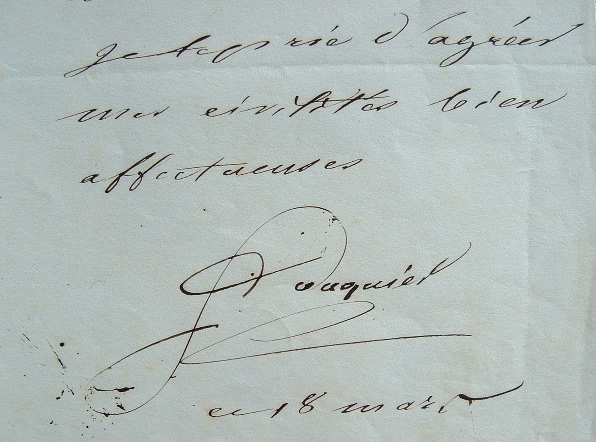 je te prie d'agréer
mes civilités bien
affectueuses
Fouquier
ce 18 mars